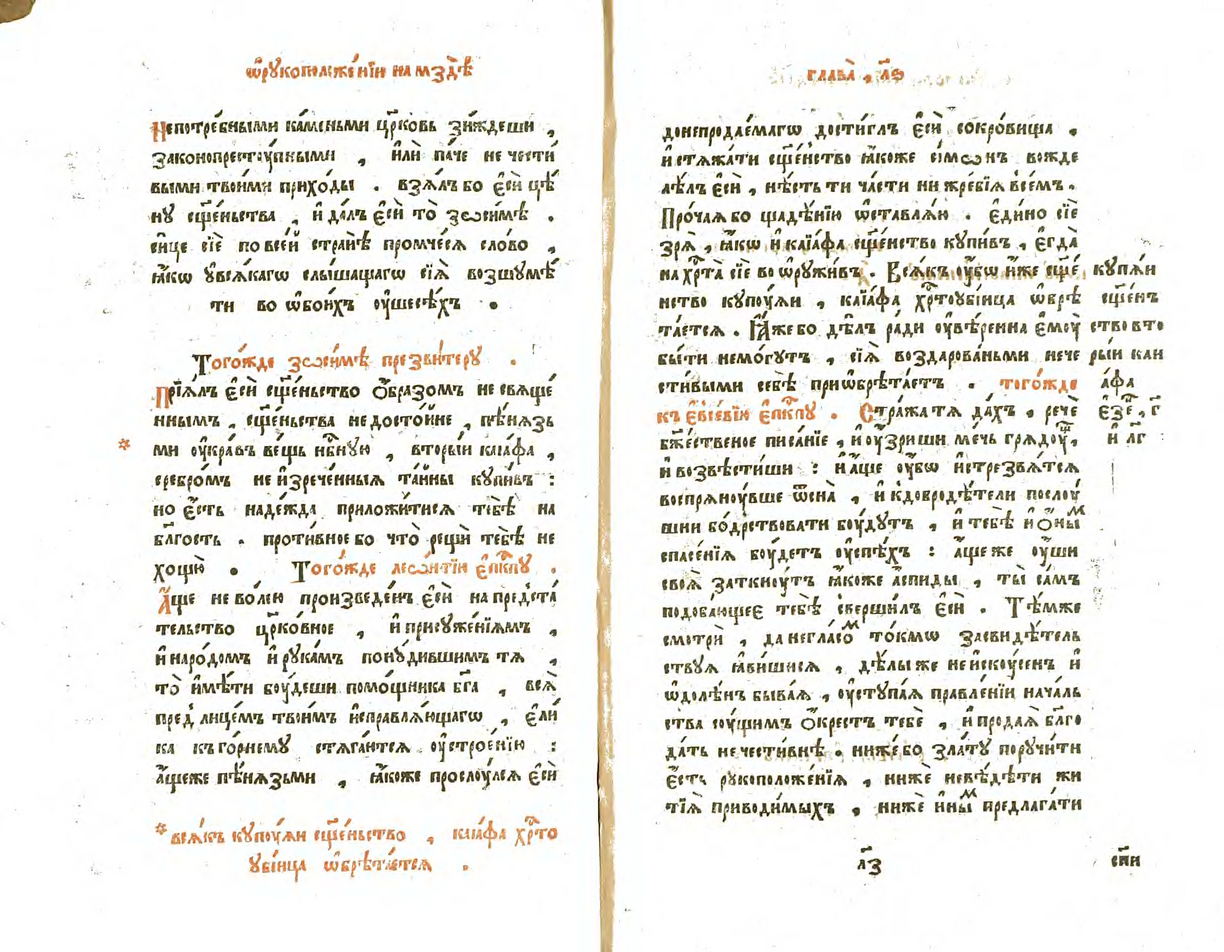 ѿрꙋкоположе́нїи на мздѣ̀
Непотре́бными ка́меньми цр҃ковь зи́ждеши ,
законопрестꙋ́пными , и҆лѝ па́че не чести́
выми твои́ми прихо́ды . взѧ́лъ бо є҆сѝ цѣ́
нꙋ сщ҃е́ньства , и҆ да́лъ є҆сѝ то̀ зѡси́мѣ .
си́це сїѐ по все́й странѣ̀ промче́сѧ сло́во ,
ꙗ҆́кѡ ᲂу҆всѧ́кагѡ слы́шащагѡ сїѧ̀ возшꙋмѣ́
ти во ѡ҆бои́хъ ᲂу҆шесѣ́хъ .
Тогѡ́жде зѡси́мѣ презви́терꙋ .
Прїѧ́лъ є҆сѝ сщ҃е́ньство ѻ҆́бразомъ не свѧще́
ннымъ , сщ҃е́ньства не досто́йне , пѣ́нѧзь
ми ᲂу҆кра́въ ве́щь нб҃нꙋю , вторы́й каїа́фа ,
сребро́мъ не и҆зрече́нныѧ та́йны кꙋпи́въ :
но є҆́сть наде́жда приложи́тисѧ тебѣ̀ на
бл҃гость . проти́вное бо что̀ рещѝ тебѣ̀ не
хощꙋ̀ . Тогѡ́жде леѡ́нтїи є҆пⷭ҇кпꙋ .
А҆́ще не во́лею произведе́нъ є҆сѝ на предста́
тельство цр҃ко́вное , и҆ присꙋже́нїѧмъ ,
и҆ наро́домъ и҆ рꙋка́мъ понꙋ́дившимъ тѧ ,
то̀ и҆мѣ́ти бꙋ́деши помо́щника бг҃а , всѧ̀
пред̾ лице́мъ твои́мъ и҆справлѧ́ющагѡ , є҆ли́
ка къ го́рнемꙋ стѧга́ютсѧ ᲂу҆строе́нїю :
а҆́щеже пѣ́нѧзьми , ꙗ҆́коже прослꙋ́лсѧ є҆сѝ
* всѧ́къ кꙋпꙋ́ѧи сщ҃е́ньство , каїа́фа хрⷭ҇то
ᲂу҆бі́ица ѡ҆брѣта́етсѧ .
глава̀ , л҃ѳ
донепродае́магѡ дости́глъ є҆сѝ сокро́вища .
и҆ стѧжа́ти сщ҃е́нство ꙗ҆́коже сі́мѡнъ вожде
лѣ́лъ є҆сѝ , нѣ́сть ти ча́сти ни жре́бїѧ всем̀ъ .
Про́чаѧ бо щадѣ́нїи ѡ҆ставлѧ́ѧи . є҆ди́но сїѐ
зрѧ̀ , ꙗ҆́кѡ и҆ каїа́фа сщ҃е́нство кꙋпи́въ , є҆гда̀
на хрⷭ҇та̀ сїѐ во ѡ҆рꙋжи́въ . Всѧ́къ ᲂу҆́бѡ и҆́же сщ҃е́
нство кꙋпꙋ́ѧи , каїа́фа хрⷭ҇тоубі́ица ѡ҆брѣ
та́етсѧ . Ꙗ҆́же бо дѣ́лъ ра́ди ᲂу҆вѣ́ренна є҆мꙋ̀
бы́ти немо́гꙋтъ , сїѧ̀ воздарова́ньми нече
сти́выми себѣ̀ приѡбрѣта́етъ . тогѡ́жде
къ є҆все́вїю є҆пⷭ҇кпꙋ . Стра́жа тѧ да́хъ , речѐ
бж҃е́ственое писа́нїе , и҆ ᲂу҆́зриши ме́чь грѧдꙋ́щ ,
и҆ возвѣсти́ши : и҆ а҆́ще ᲂу҆́бѡ и҆стрезвѧ́тсѧ
воспрѧнꙋ́вше ѿ сна̀ , и҆ к̾добродѣ́тели послꙋ́
шни бо́дрствовати бꙋ́дꙋтъ , и҆ тебѣ̀ и҆ ѻ҆ны́м
спасе́нїѧ бꙋ́детъ ᲂу҆спѣ́хъ : а҆́ще же ᲂу҆́ши
своѧ̀ заткнꙋ́тъ ꙗ҆́коже а҆́спиды , ты̀ са́мъ
подоба́ющеє тебѣ̀ сверши́лъ є҆сѝ . Тѣ́мже
смотрѝ , да не гла́сом то́кмѡ засвидѣ́тель
ствꙋѧ ꙗ҆ви́шисѧ , дѣ́лы же не и҆скꙋ́сенъ и҆
ѡ҆долѣ́нъ быва́ѧ , ᲂу҆стꙋпа́ѧ правле́нїи нача́ль
ства сꙋ́щимъ ѻ҆́крестъ тебѐ , и҆ продаѧ̀ бл҃го
да́ть не че́стивнѣ . ниже́ бо зла́тꙋ порꙋчи́ти
є҆́сть рꙋкоположе́нїѧ , нижѐ невѣ́дѣти жи
тїѧ̀ приводи́мыхъ , нижѐ и҆ны́м предлага́ти
кꙋпꙋ́ѧи
сщ҃е́н
ство вто
ры́й каи
а҆́фа
є҆зе҃ , г҃
и҆ л҃г
л҃з
сп҃и